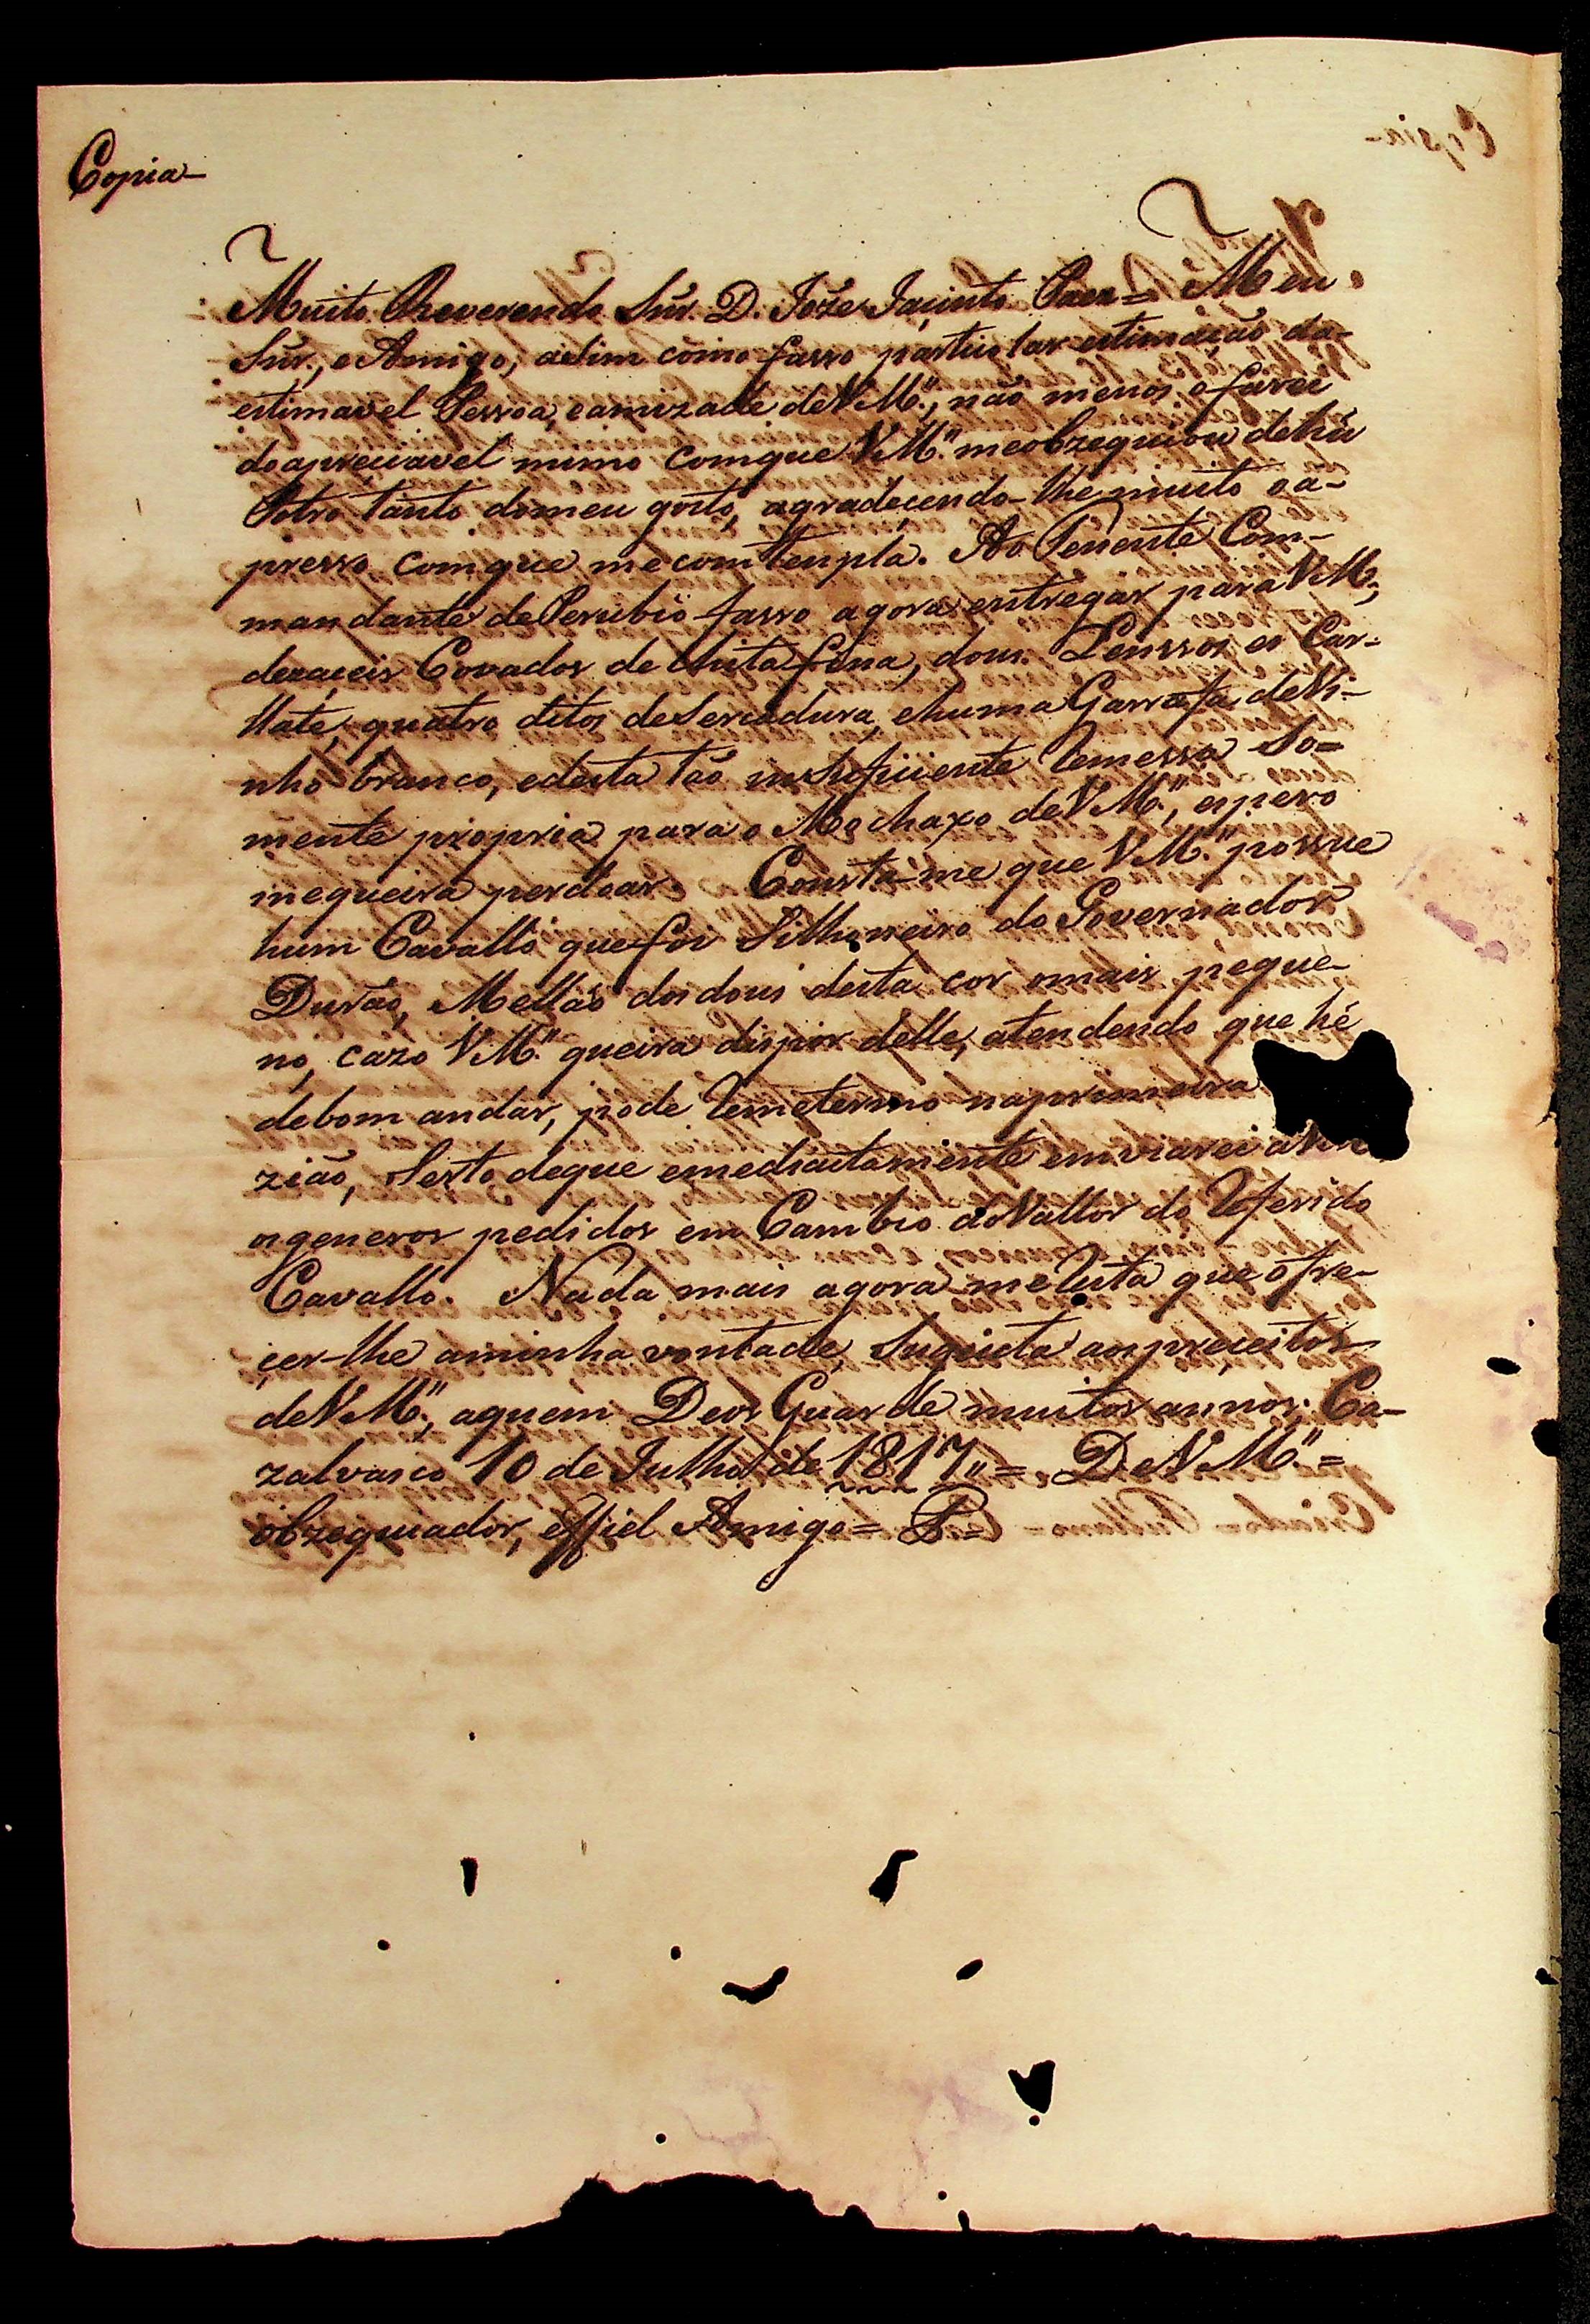 Copia
Muito Reverendo Snr. D. Joze Jacinto Paez = Meu
Snr., e Amigo, asim como fasso particolar estimação da
estimavel Pessoa, e amizade de VM.ce, não menos o farei
do apreciavel mimo com que VM.ce me obzequiou de hũ
Potro tanto do meu gosto, agradecendo-lhe muito o a-
presso com que me comtenpla. Ao Tenente Com-
mandante de Perubio fasso agora entregar para VM.ce
dezaceis Covados de Chita fina, dous Lenssos es Car-
llate, quatro ditos de Sercadura, e huma Garrafa de Vi-
nho branco, e desta tão insuficiente Remessa So=
mente propria para o Mochaxo de VM.ce, espero
me queira perdoar. Consta-me que VM.ce possue
hum Cavallo que foi Silhoneiro do Governador
Durão, Mellão dos dous desta cor o mais peque-
no, cazo VM.ce queira dispor delle, atendendo que hé
de bom andar, pode Remetermo na primeira
zião, Serto de que emediactamente emviarei a
os generos pedidos em Cambio do Vallor do Referido
Cavallo. Nada mais agora me Resta que ofre-
cer-lhe a minha vontade, Sugeita aos preceitos
de VM.ce, a quem Deos Guarde muitos annos. Ca-
zalvasco 10 de Julho de 1817,, = De VM.ce =
obzequiador, e ffiel Amigo =